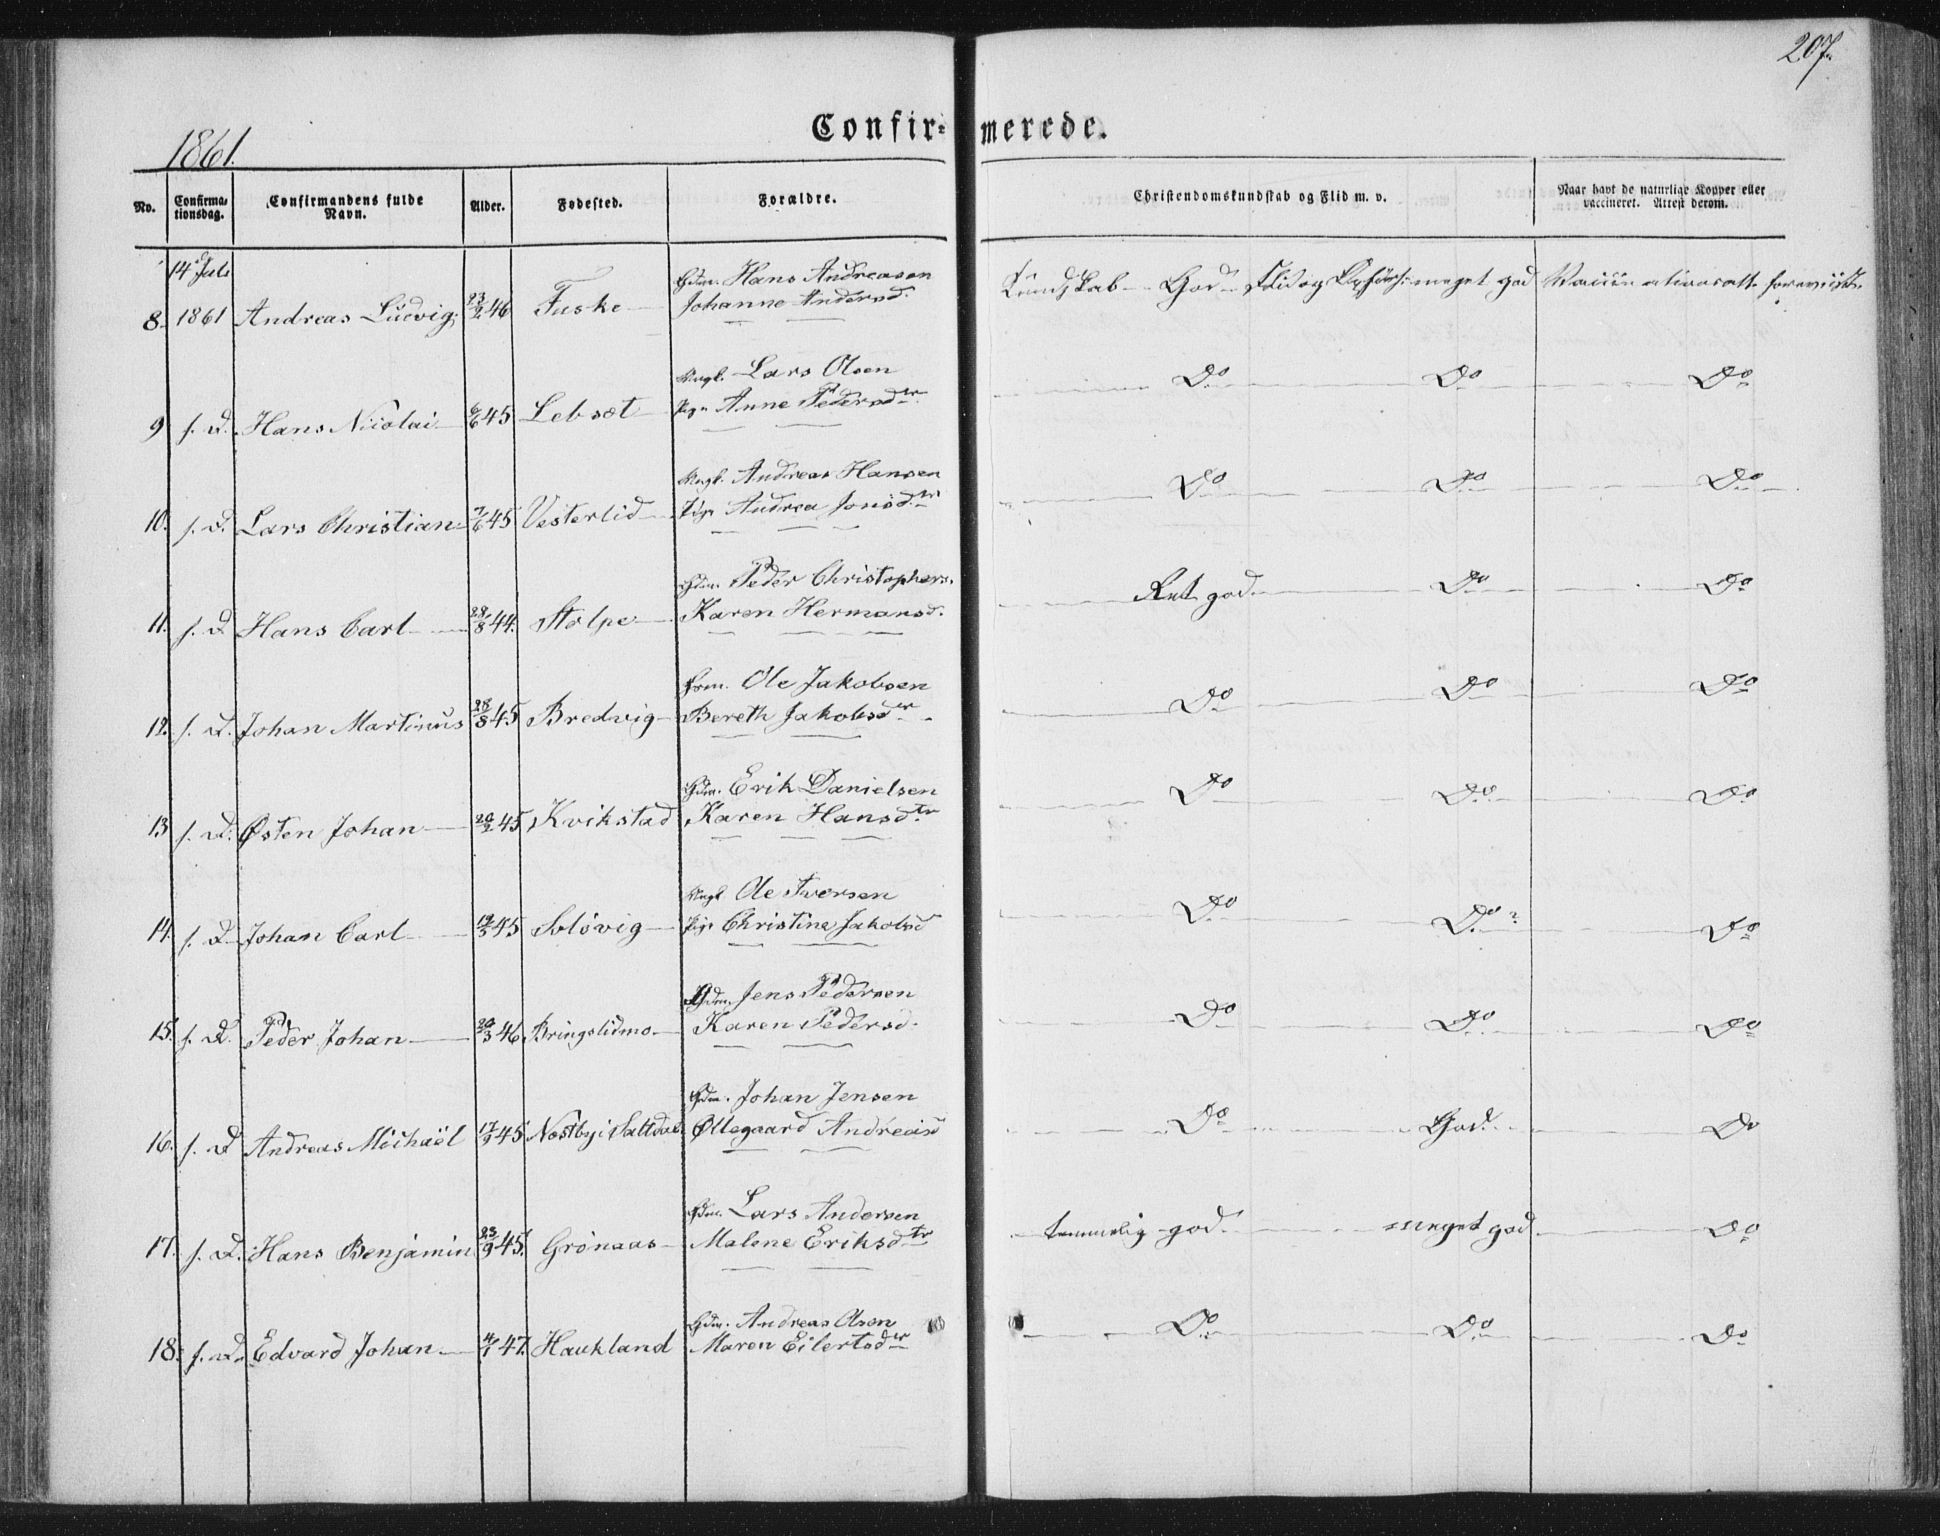 207.
Confir= merede.
1861.
No. Confirmationsdag. Confirmandens fulde Navn. Alder. Fødested. Forældre. Christendomskundskab og Flid m. v. Naar havt de naturlige Kopper eller vaccineret. Attest derom.
14de Juli Gdm. Hans Andreasen
8. 1861 Andreas Ludvig 23/2 46 Fuske Johanne Andersd. Kundskab God Flid og Opførs: meget god Vaccinationsatt. foreviist.
Ungk. Lars Olsen
9 s. D. Hans Nicolai 6/6 45 Lebsæt Pige Anne Pedersdtr. Do Do Do
Ungk. Andreas Hansen
10. s. D. Lars Christian 7/6 45 Vesterlid Pige Andrea Jonsdtr Do Do Do
Gdm. Peder Christophers.
11. s. D. Hans Carl 28/8 44. Stolpe Karen Hermansd. Ret god. Do Do
Ole Jakobsen
12. s. D. Johan Martinus 28/8 45 Bredvig Bereth Jakobsdtr. Do Do Do
Gdm. Erik Danielsen
13 s. D. Østen Johan 20/2 45 Kvikstad Karen Hansdtr Do Do Do
Ungk. Ole Iversen
14. s. D. Johan Carl 45 Soløvig Pige Christina Jakobsd Do Do Do
Gdm. Jens Pedersen
15. s. D. Peder Johan 20/3 46 Bringslidmo Karen Pedersd. Do Do Do
Gdm. Johan Jensen
16. s. D Andreas Michaël 17/9 45 Næstby i Saltdal Øllegaard Andreasd Do God. Do
Gdm. Lars Andersen
17. s. D. Hans Benjamin 23/9 45. Grønaas Malene Eriksdtr temmelig god. meget god Do
Gdm. Andreas Olsen
18. s. D. Edvard Johan 4/1 47. Haukland Maren Eilertsdtr Do Do Do